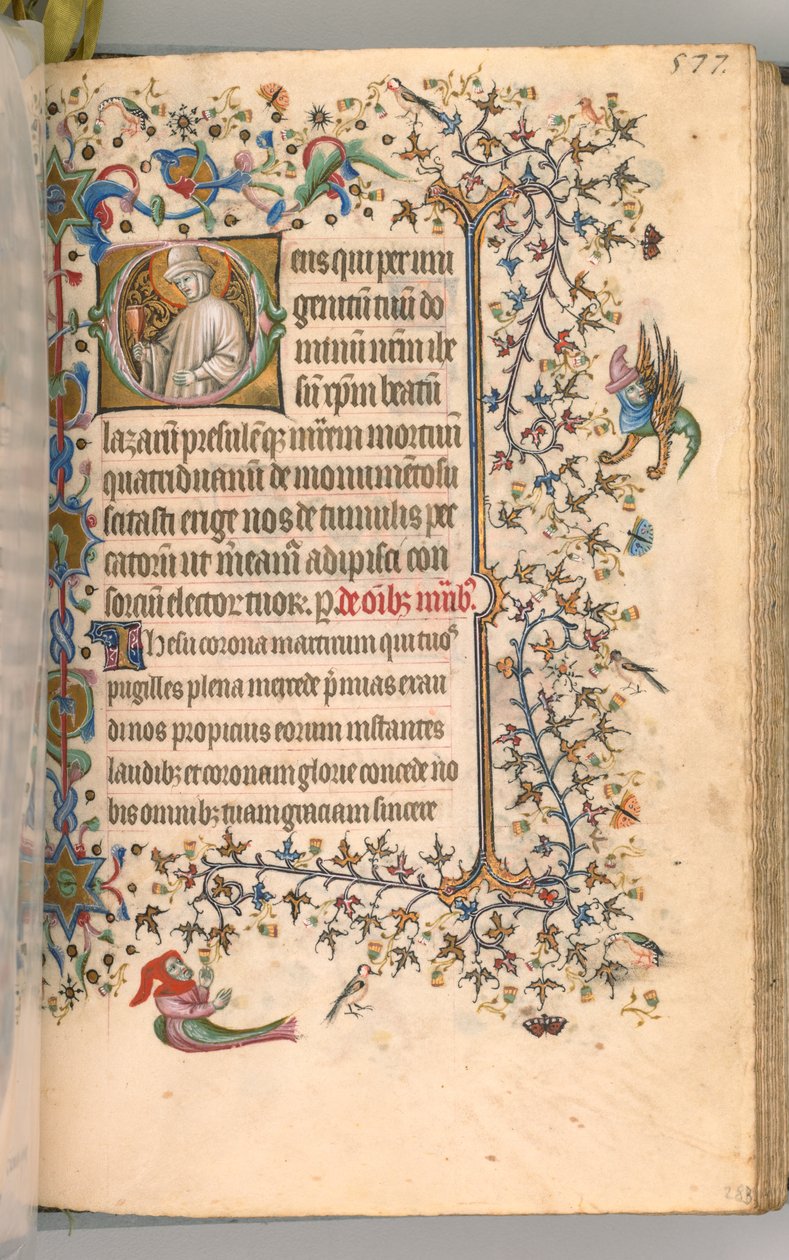 577.
Deus qui per uni
genitū tuū do
minū nr̄m ihe
sū xp̄m beatū
lazarū presulēqꝫ mr̄em mortuū
quatriduanū de monumēto su
scitasti erige nos de tumulis pec
catorū ut m̄eam̄ adipisci con
sorciū electoꝝ tuoꝝ. P. de oībꝫ mr̄ibꝫ.
Ihesu corona martirum qui tuos
pugilles plena mercede p̄mias exau
di nos propicius eorum instantes
laudibꝫ et coronam glorie concede no
bis omnibꝫ tuam graciam sincere
288